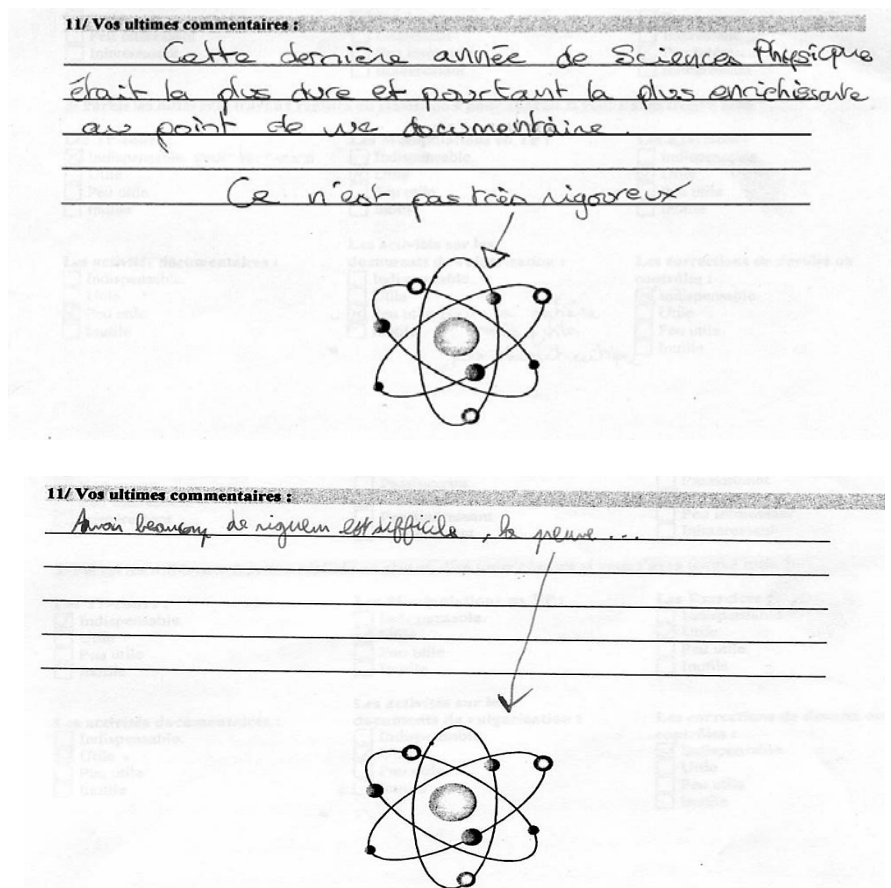 11/ Vos ultimes commentaires :
Cette dernière année de Sciences Physique
était la plus dure et pourtant la plus enrichissante
au point de vue documentaire.
Ce n'est pas très rigoureux
11/ Vos ultimes commentaires :
Avoir beaucoup de rigueur est difficile, la preuve ...